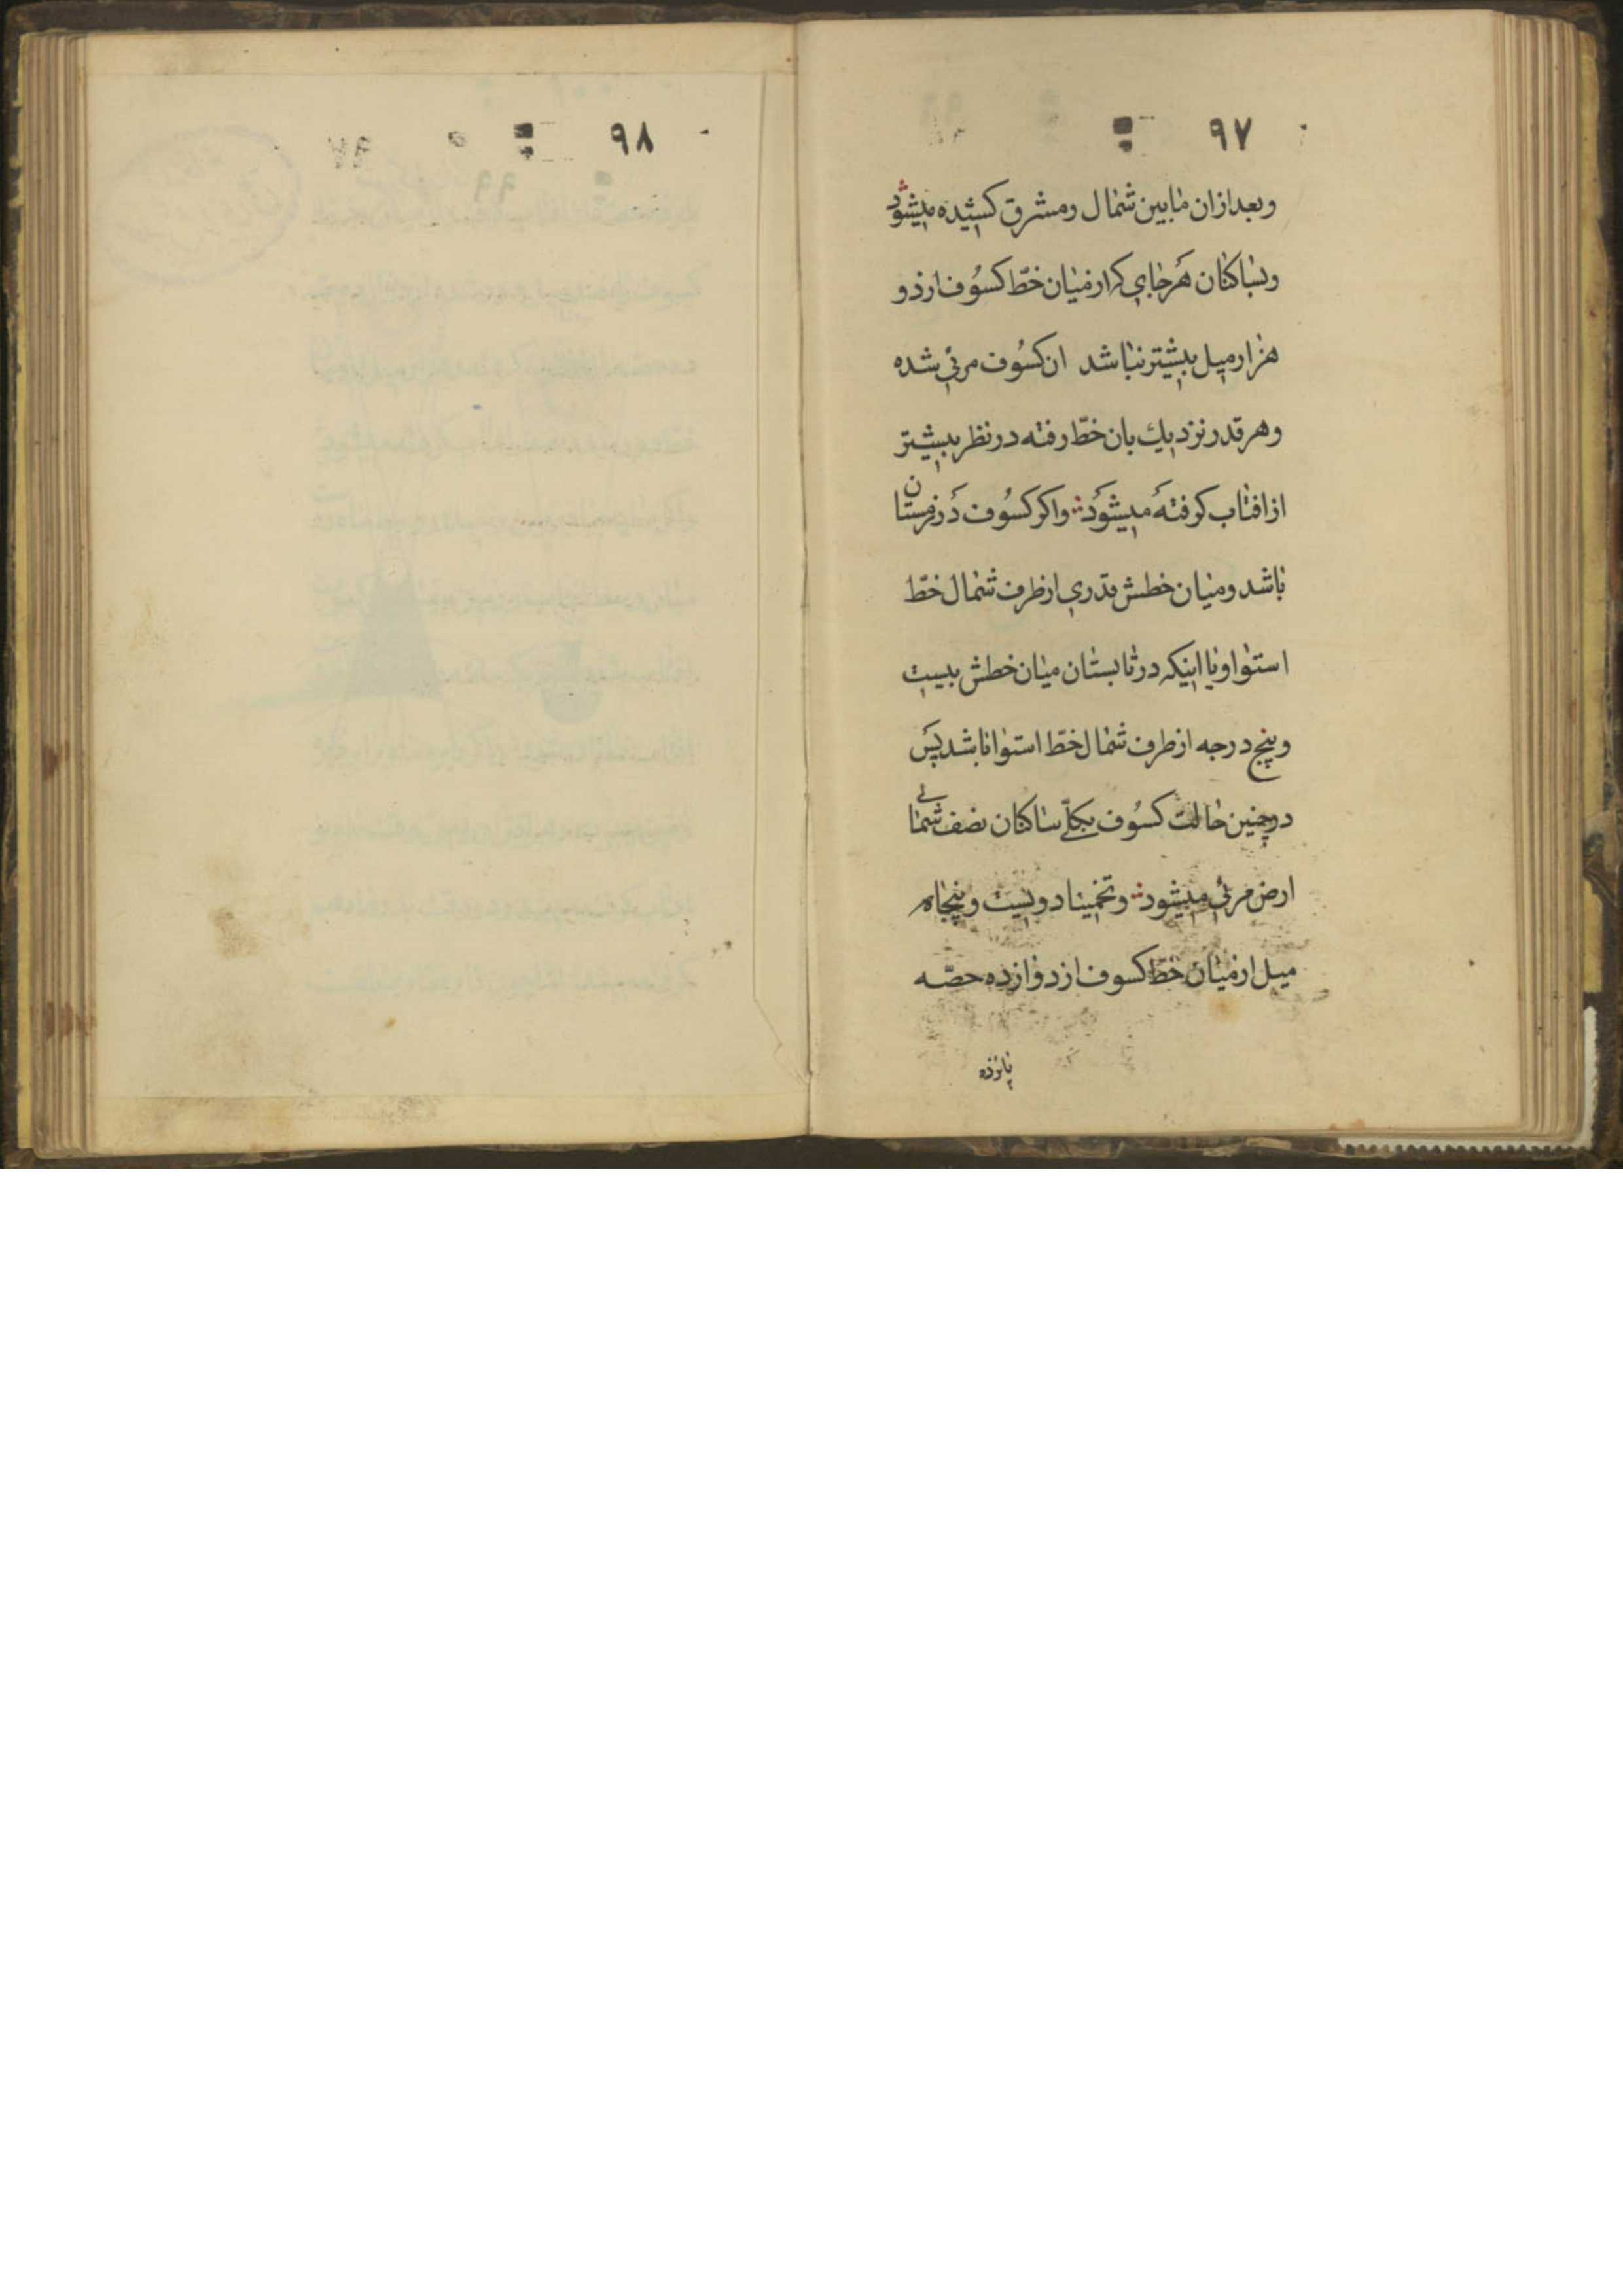 ۹۷
وبعدازان مابین شمال ومشرق کشیده میشود
وبساکنان هرجای که از میان خطّ کسُوف از دو
هزار میل بیشتر نباشد ان کسُوف مرئي شده
وهر قدر نزدیك بان خطّ رفته در نظر بیشتر
از افتاب کرفته میشود واکر کسُوف در زمستان
باشد ومیان خطش قدري از طرف شمال خطّ
استوا ویا اینکه در تابستان میان خطش بیست
وپنج درجه از طرف شمال خطّ استوا باشد پس
در چنین حالت کسُوف بکلّي ساکنان نصف شمالي
ارض مرئي میشود وتخمینا دویست وپنجاه
میل از میان خطّ کسوف از دوازده حصّه
پانزده
۹۸